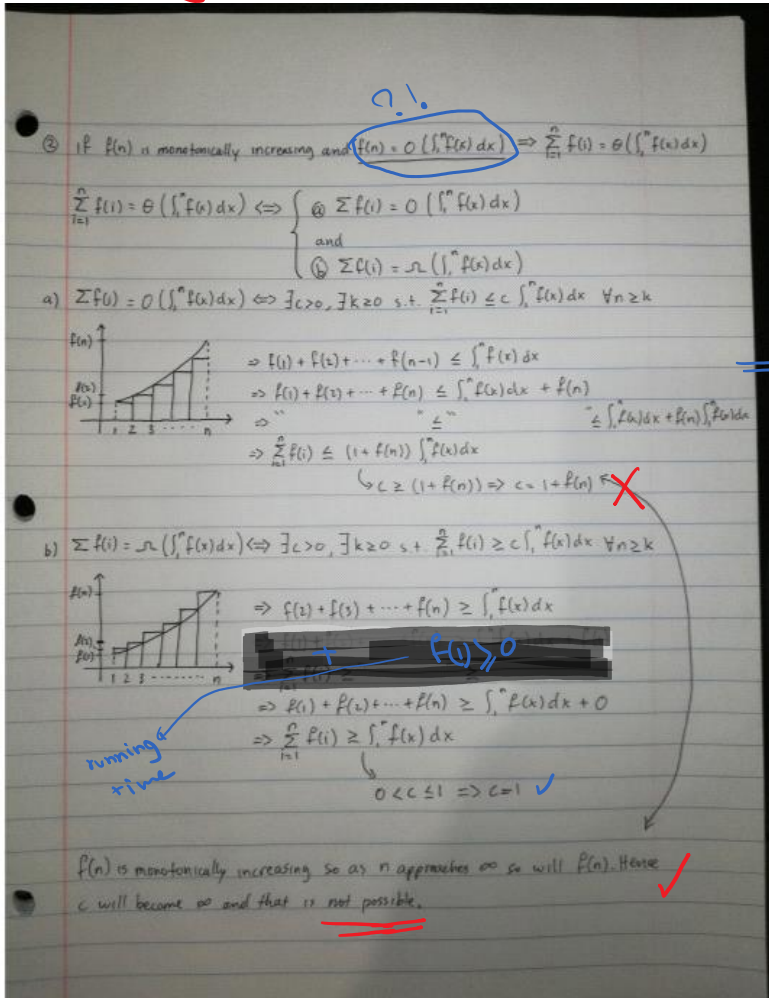 ?!
② If f(n) is monotonically increasing and f(n) = O(∫₁ⁿ f(x) dx) ⇒ Σᵢ₌₁ⁿ f(i) = θ(∫₁ⁿ f(x) dx)
Σᵢ₌₁ⁿ f(i) = θ(∫₁ⁿ f(x) dx) ⇔ { ⓐ Σ f(i) = O(∫₁ⁿ f(x) dx)
and
ⓑ Σ f(i) = Ω(∫₁ⁿ f(x) dx)
a) Σ f(i) = O(∫₁ⁿ f(x) dx) ⇔ ∃c>0, ∃k≥0 s.t. Σᵢ₌₁ⁿ f(i) ≤ c ∫₁ⁿ f(x) dx ∀n≥k
f(n)
f(2)
f(1)
1 2 3 ..... n
⇒ f(1) + f(2) + ... + f(n-1) ≤ ∫₁ⁿ f(x) dx
⇒ f(1) + f(2) + ... + f(n) ≤ ∫₁ⁿ f(x) dx + f(n)
⇒ " " ≤ " " ≤ ∫₁ⁿ f(x) dx + f(n) ∫₁ⁿ f(x) dx
⇒ Σᵢ₌₁ⁿ f(i) ≤ (1 + f(n)) ∫₁ⁿ f(x) dx
↳ c ≥ (1 + f(n)) ⇒ c = 1 + f(n) ✗
b) Σ f(i) = Ω(∫₁ⁿ f(x) dx) ⇔ ∃c>0, ∃k≥0 s.t. Σᵢ₌₁ⁿ f(i) ≥ c ∫₁ⁿ f(x) dx ∀n≥k
f(n)
f(2)
f(1)
1 2 3 ....... n
⇒ f(2) + f(3) + ... + f(n) ≥ ∫₁ⁿ f(x) dx
+ f(1) ≥ 0
running
time
⇒ f(1) + f(2) + ... + f(n) ≥ ∫₁ⁿ f(x) dx + 0
⇒ Σᵢ₌₁ⁿ f(i) ≥ ∫₁ⁿ f(x) dx
0 < c ≤ 1 ⇒ c=1 ✓
f(n) is monotonically increasing so as n approaches ∞ so will f(n). Hence ✓
c will become ∞ and that is not possible.